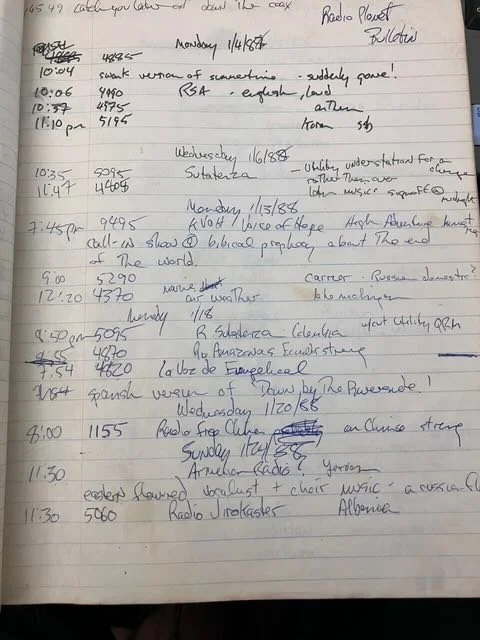 145.49 catch you later on down the coax
Radio Planet
Bulletin
Monday 1/4/88
4885
10:04 swank version of summertime - suddenly gone!
10:06 4990 RSA - english, loud
10:37 4975 anthem
11:10 pm 5195 Korea
Wednesday 1/6/88
10:35 5095 Sutatenza - Utility under station for a change
rather than over
11:47 4408 latin music signoff @ midnight
Monday 1/13/88
7:45 pm 9495 KVOH / Voice of Hope High Adventure
call-in show @ biblical prophesy about The end
of The world.
9:00 5290 carrier - Russian domestic?
12:20 4370 marine air weather lake michigan
Monday 1/18
8:50 pm 5095 R Sutatenza Colombia w/out Utility QRM
8:55 4870 Rio Amazonas Ecuador strong
9:54 4820 La Voz de Evangelical
9:54 spanish version of "Down by The Riverside"!
Wednesday 1/20/88
8:00 1155 Radio Free China on China strong
Sunday 1/24/88
11:30 Armenian Radio? Yerevan
eastern flavored vocalist + choir music - a russian
11:30 5060 Radio Jirokaster Albania